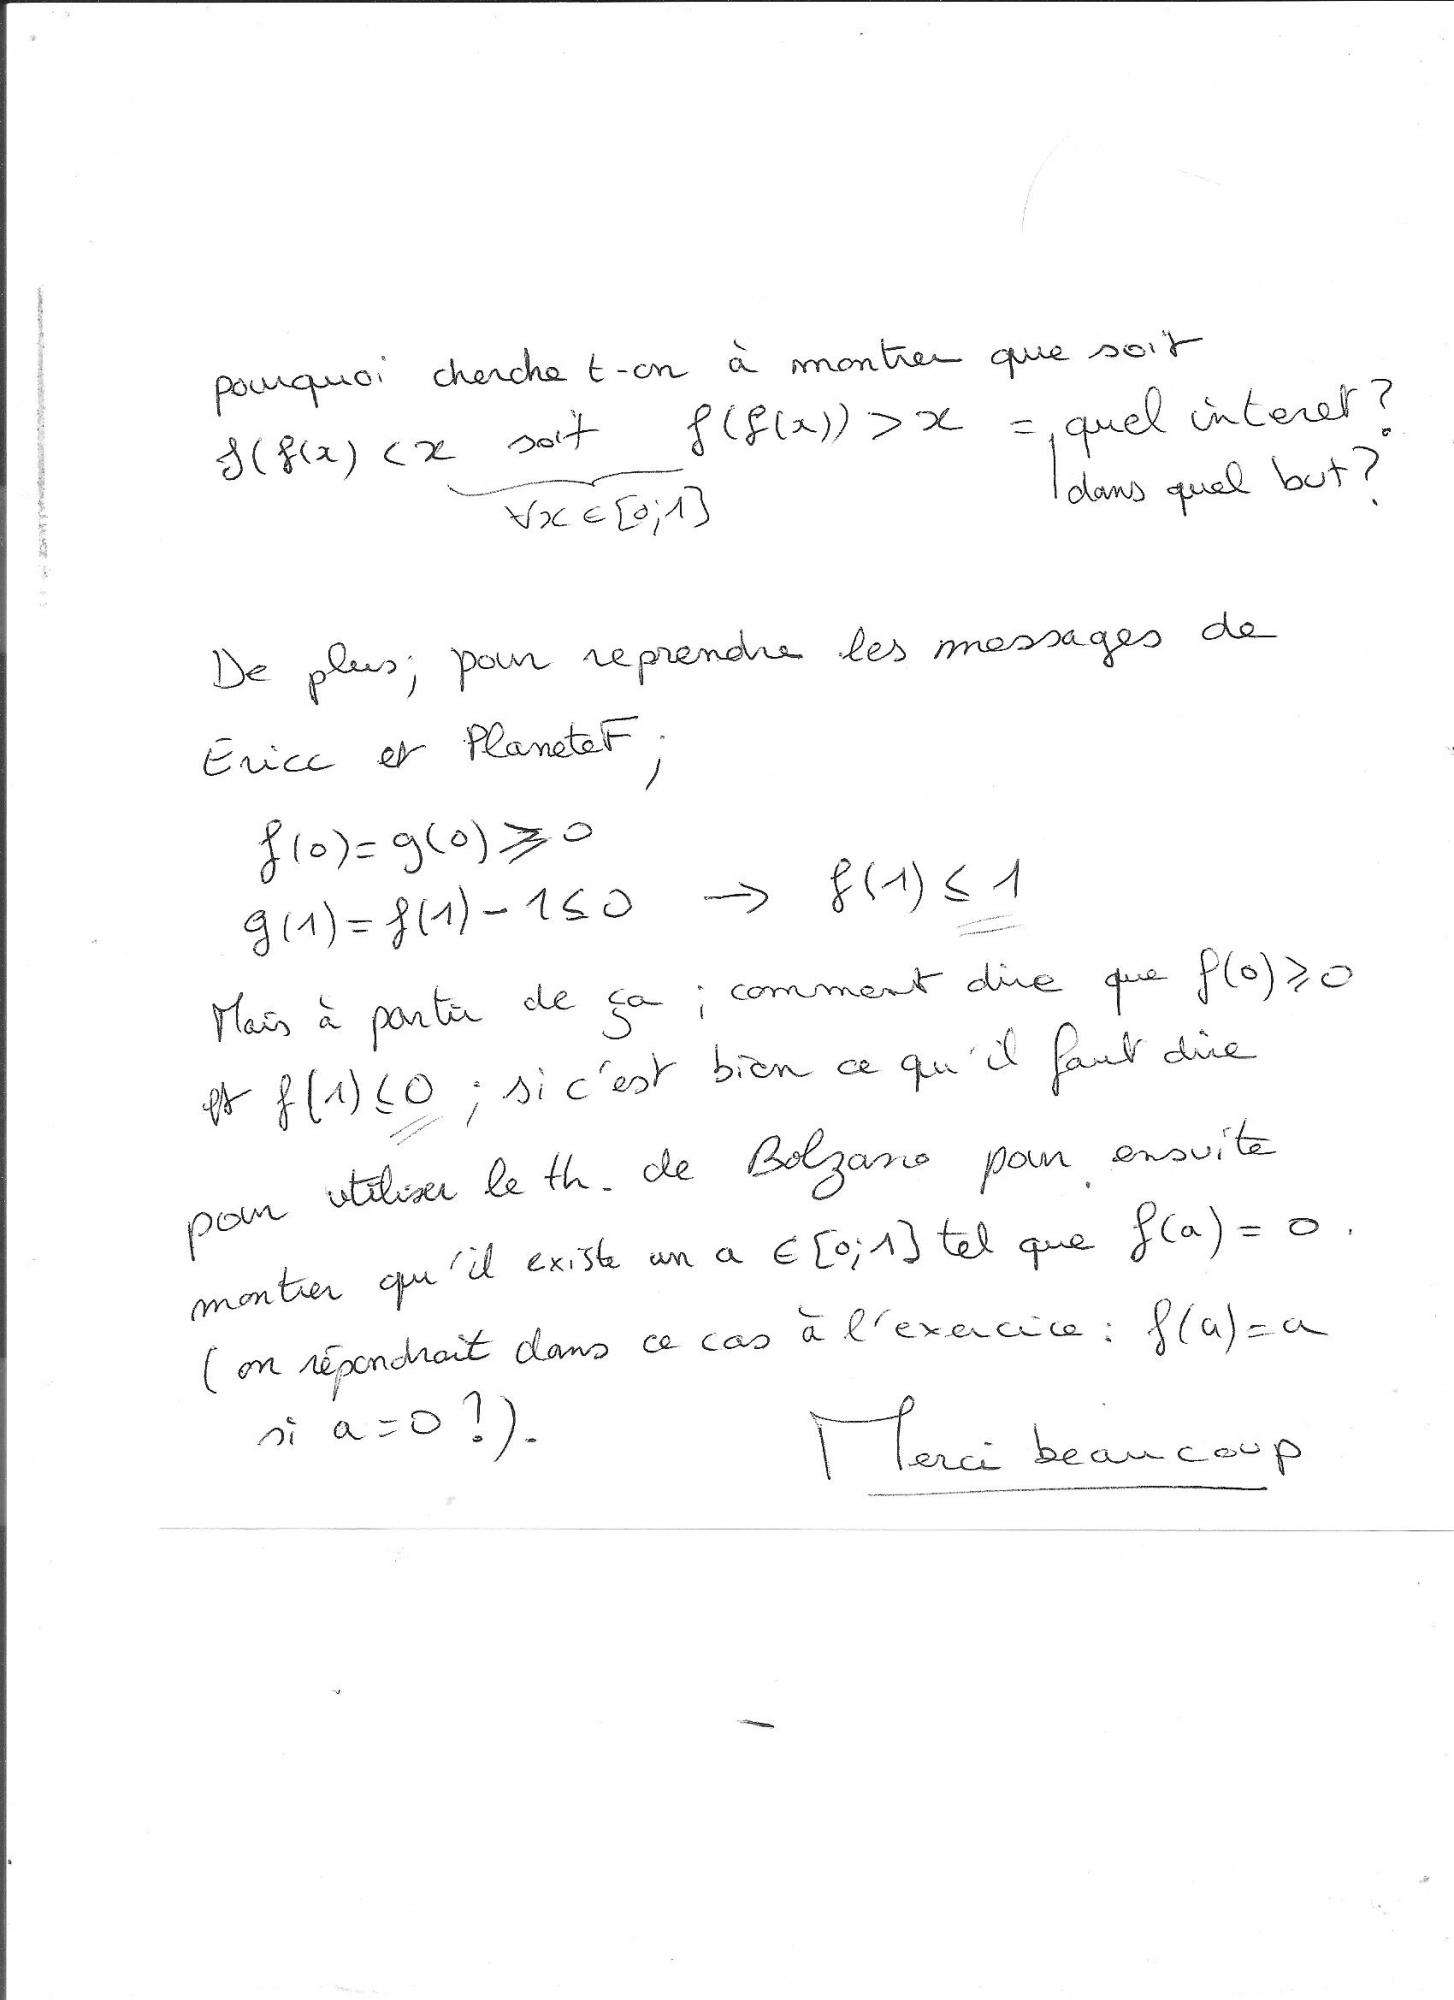 pourquoi cherche t-on à montrer que soit
f(f(x) < x soit f(f(x)) > x = quel interet?
dans quel but?
∀x ∈ [0;1]
De plus; pour reprendre les messages de
Ericc et PlaneteF;
f(0) = g(0) ⩾ 0
g(1) = f(1) - 1 ≤ 0 → f(1) ≤ 1
Mais à partir de ça; comment dire que f(0) ⩾ 0
et f(1) ≤ 0 ; si c'est bien ce qu'il faut dire
pour utiliser le th. de Bolzano pour ensuite
montrer qu'il existe un a ∈ [0;1] tel que f(a) = 0.
(on répondrait dans ce cas à l'exercice: f(a) = a
si a = 0 ?).
Merci beaucoup